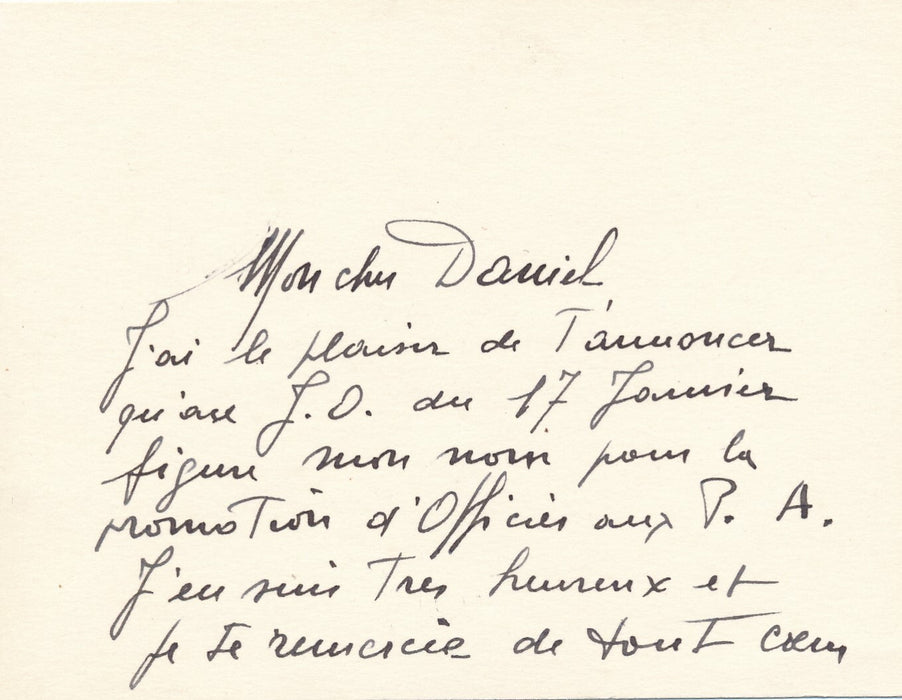 Mon cher Daniel
J'ai le plaisir de t'annoncer
qu'au J.O. du 17 Janvier
figure mon nom pour la
promotion d'Officier aux P. A.
J'en suis très heureux et
je te remercie de tout cœur